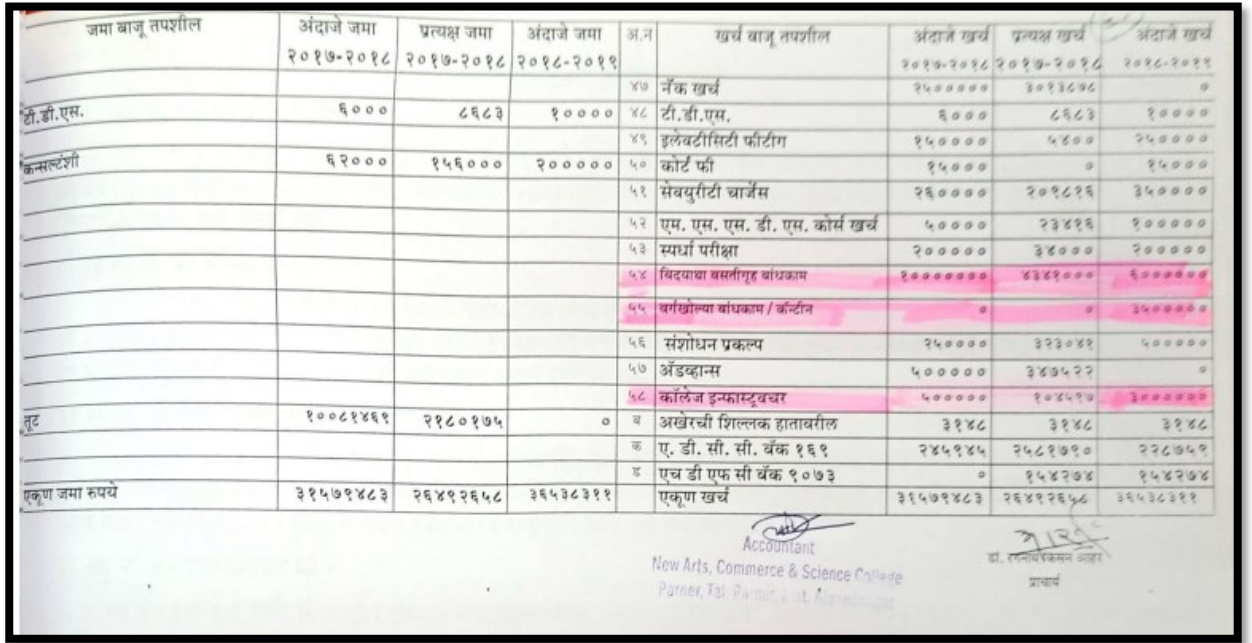 जमा बाजू तपशील अंदाजे जमा प्रत्यक्ष जमा अंदाजे जमा अ.न खर्च बाजू तपशील अंदाजे खर्च प्रत्यक्ष खर्च अंदाजे खर्च
२०१७-२०१८ २०१७-२०१८ २०१८-२०१९ २०१७-२०१८ २०१७-२०१८ २०१८-२०१९
४७ नॅक खर्च २५००००० ३०१३८७८ ०
टी.डी.एस. ६००० ८६८३ १०००० ४८ टी.डी.एस. ६००० ८६८३ १००००
४९ इलेक्टीसिटी फीटींग १५०००० ५४०० २५००००
कन्सल्टंशी ६२००० १५६००० २००००० ५० कोर्ट फी १५००० ० १५०००
५१ सेक्युरीटी चार्जेस २६०००० २०९८१६ ३५००००
५२ एम. एस. एस. डी. एस. कोर्स खर्च ५०००० २३४१६ १०००००
५३ स्पर्धा परीक्षा २००००० ३४००० २०००००
५४ वसतीगृह बांधकाम १००००००० ४३४१००० ६००००००
५५ वर्गखोल्या बांधकाम / कॅन्टीन ० ० ३५०००००
५६ संशोधन प्रकल्प २५०००० ३२३०४१ ५०००००
५७ अॅडव्हान्स ५००००० ३४७५२२ ०
५८ कॉलेज इन्फास्ट्रक्चर ५००००० १०४५१७ ३००००००
तूट १००८१४६१ २१८०१७५ ० ब अखेरची शिल्लक हातावरील ३१४८ ३१४८ ३१४८
क ए. डी. सी. सी. बॅंक १६९ २४५१४५ २५८१७१० २२८७५१
ड एच डी एफ सी बॅंक ९०७३ ० १५४२७४ १५४२७४
एकूण जमा रुपये ३१५७९४८३ २६४९२६५८ ३६५३८३११ एकूण खर्च ३१५७९४८३ २६४९२६५८ ३६५३८३११
Accountant
New Arts, Commerce & Science College
Parner, Tal. Parner, Dist. Ahmednagar
डॉ. आहेर
प्राचार्य